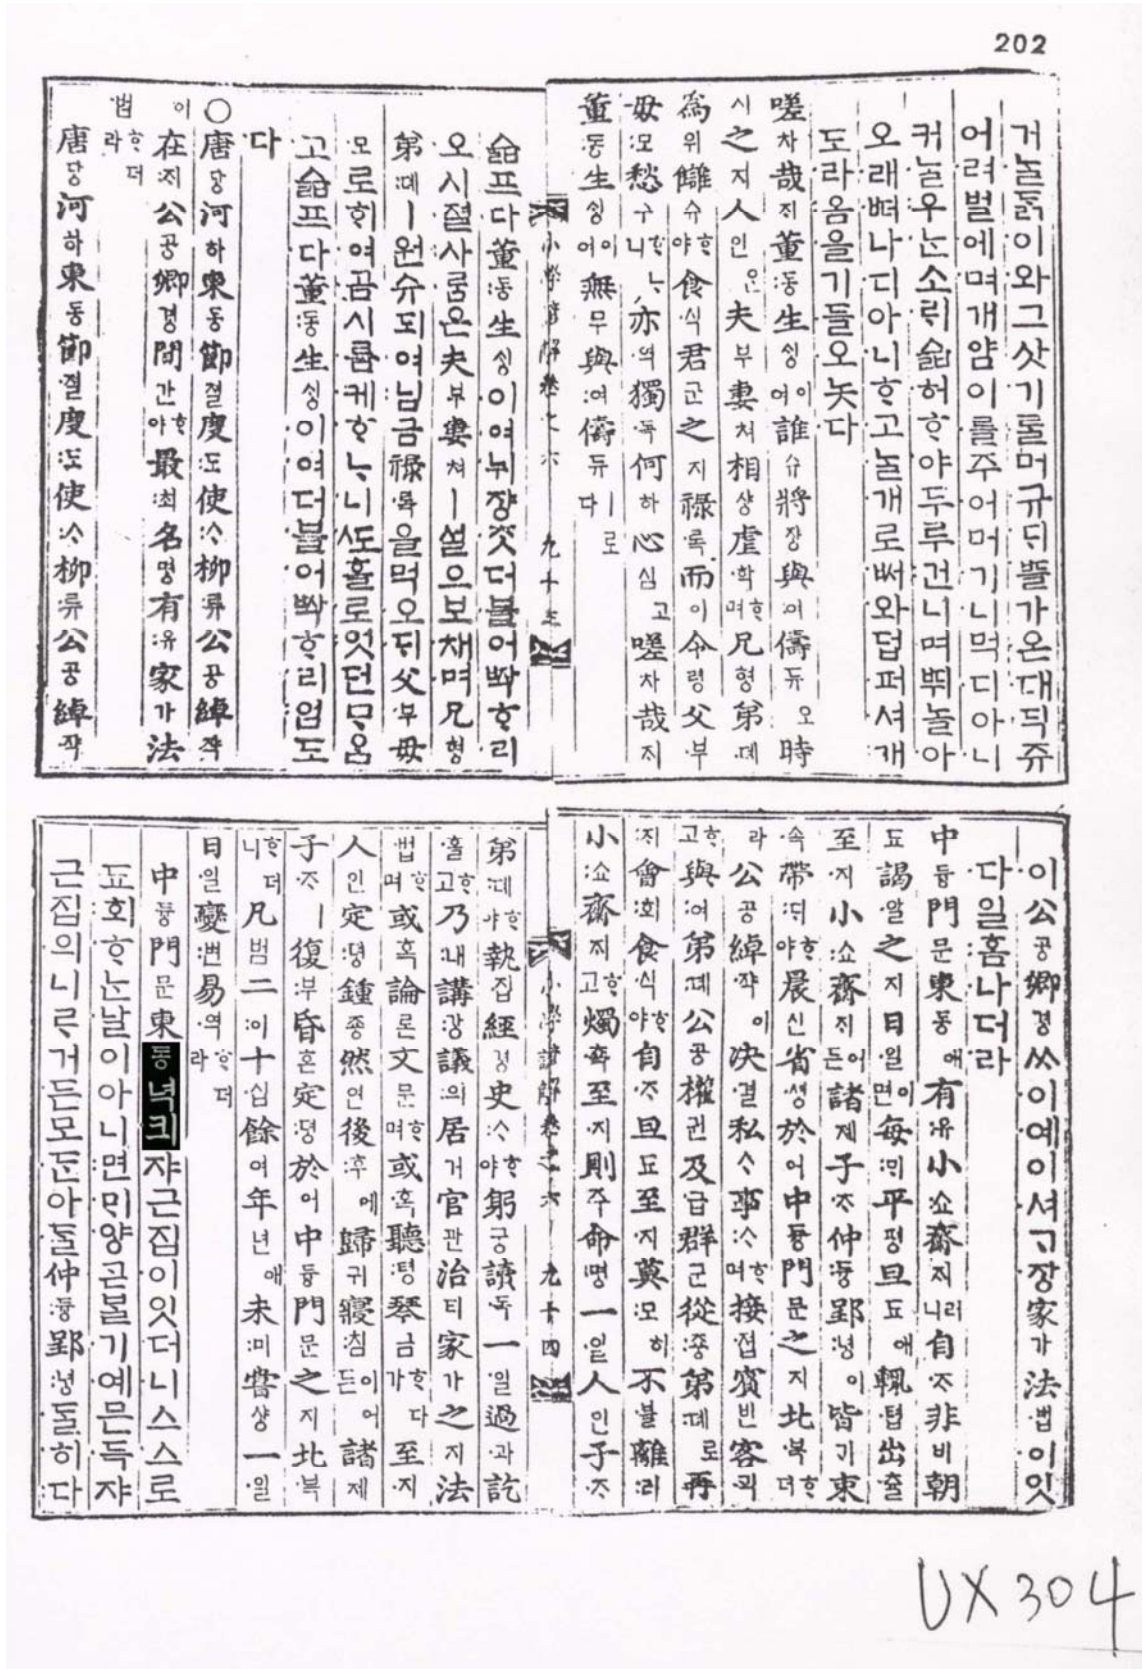 202
거ᄂᆞᆯᄃᆞᆰ이와그삿기ᄅᆞᆯ머규ᄃᆡᄠᅳᆯ가온대딕쥬
어려벌에며개얌이ᄅᆞᆯ주어머기니먹디아니
커ᄂᆞᆯ우ᄂᆞᆫ소ᄅᆡ슬허ᄒᆞ야두루건니며ᄠᅱ놀아
오래ᄠᅥ나디아니ᄒᆞ고ᄂᆞᆯ개로ᄡᅥ와덥퍼셔개
도라옴을기들오놋다
嗟차哉ᄌᆡ董동生ᄉᆡᆼ이여誰슈將쟝與여儔듀오時
시之지人인ᄋᆞᆫ夫부妻쳐相샹虐학ᄒᆞ며兄형弟뎨
爲위讎슈ᄒᆞ야食식君군之지祿록而이令령父부
母모愁수ᄒᆞᄂᆞ니亦역獨독何하心심고嗟차哉ᄌᆡ
董동生ᄉᆡᆼ이어無무與여儔듀ㅣ로다
小學諺解卷之六 九十三
슬프다董동生ᄉᆡᆼ이여뉘쟝ᄎᆞᆺ더블어ᄧᅡᆨᄒᆞ리
오시절사ᄅᆞᆷ은夫부妻쳐ㅣ설으보채며兄형
弟뎨ㅣ원슈되여님금祿록을먹오ᄃᆡ父부母
모로ᄒᆞ여곰시름케ᄒᆞᄂᆞ니ᄯᅩ홀로엇던ᄆᆞᄋᆞᆷ
고슬프다董동生ᄉᆡᆼ이여더블어ᄧᅡᆨᄒᆞ리업도
다
○唐당河하東동節졀度도使ᄉᆞ柳류公공綽쟉
이在ᄌᆡ公공卿경間간ᄒᆞ야最최名명有유家가法
법이라ᄒᆞ더라
唐당河하東동節졀度도使ᄉᆞ柳류公공綽쟉
이公공卿경ᄉᆞ이예이셔ᄀᆞ장家가法법이잇
다일홈나더라
中듕門문東동애有유小쇼齋ᄌᆡ러니自ᄌᆞ非비朝
됴謁알之지日일이면每ᄆᆡ平평旦됴애輒텹出츌
至지小쇼齋ᄌᆡ어든諸제子ᄌᆞ仲듕郢녕이皆ᄀᆡ束
속帶ᄃᆡᄒᆞ야晨신省셩於어中듕門문之지北북ᄒᆞ더
라公공綽쟉이决결私ᄉᆞ事ᄉᆞᄒᆞ며接졉賓빈客ᄀᆡᆨ
ᄒᆞ고與여弟뎨公공權권及급群군從죵弟뎨로再
ᄌᆡ會회食식ᄒᆞ야自ᄌᆞ旦됴至지莫모히不블離리
小쇼齋ᄌᆡᄒᆞ고燭쵹至지則주命명一일人인子ᄌᆞ
小學諺解卷之六 九十四
弟뎨ᄒᆞ야執집經경史ᄉᆞᄒᆞ야躬궁讀독一일過과訖
흘ᄒᆞ고乃내講강議의居거官관治티家가之지法
법ᄒᆞ며或혹論론文문ᄒᆞ며或혹聽텽琴금ᄒᆞ다가至지
人인定뎡鍾죵然연後후에歸귀寢침이어든諸제
子ᄌᆞㅣ復부昏혼定뎡於어中듕門문之지北북
ᄒᆞ더니凡범二이十십餘여年년애未미嘗샹一일
日일變변易역ᄒᆞ더라
中듕門문東동녁킈쟈근집이잇더니스스로
됴회ᄒᆞᄂᆞᆫ날이아니면ᄆᆡ양굗볼기예믄득쟈
근집의니르거든모ᄃᆞᆫ아ᄃᆞᆯ仲듕郢녕ᄃᆞᆯ히다
UX304